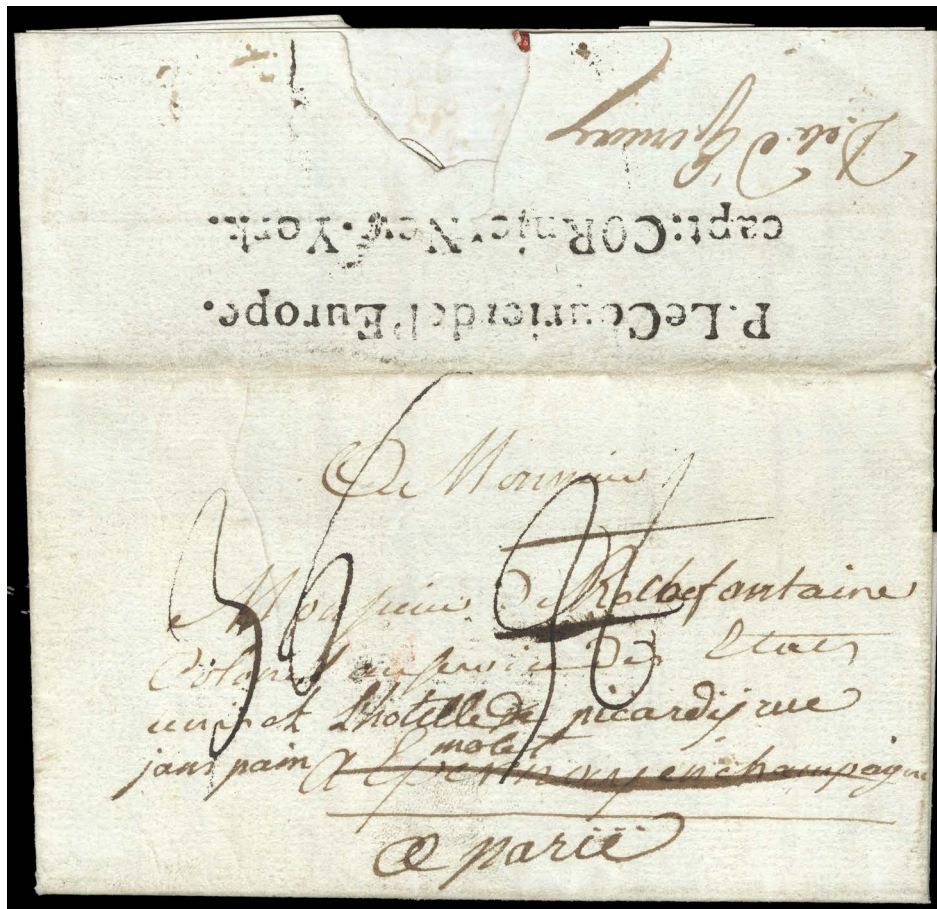 De Epernay
capt: CORnic New-York.
P. Le Courier de l'Europe.
A Monsieur
Monsieur De Rochefontaine
Colonel au service Des Etats
unis et L'hotelle de picardij rue
jans pain molet
A Epernay en champagne
a parie
36